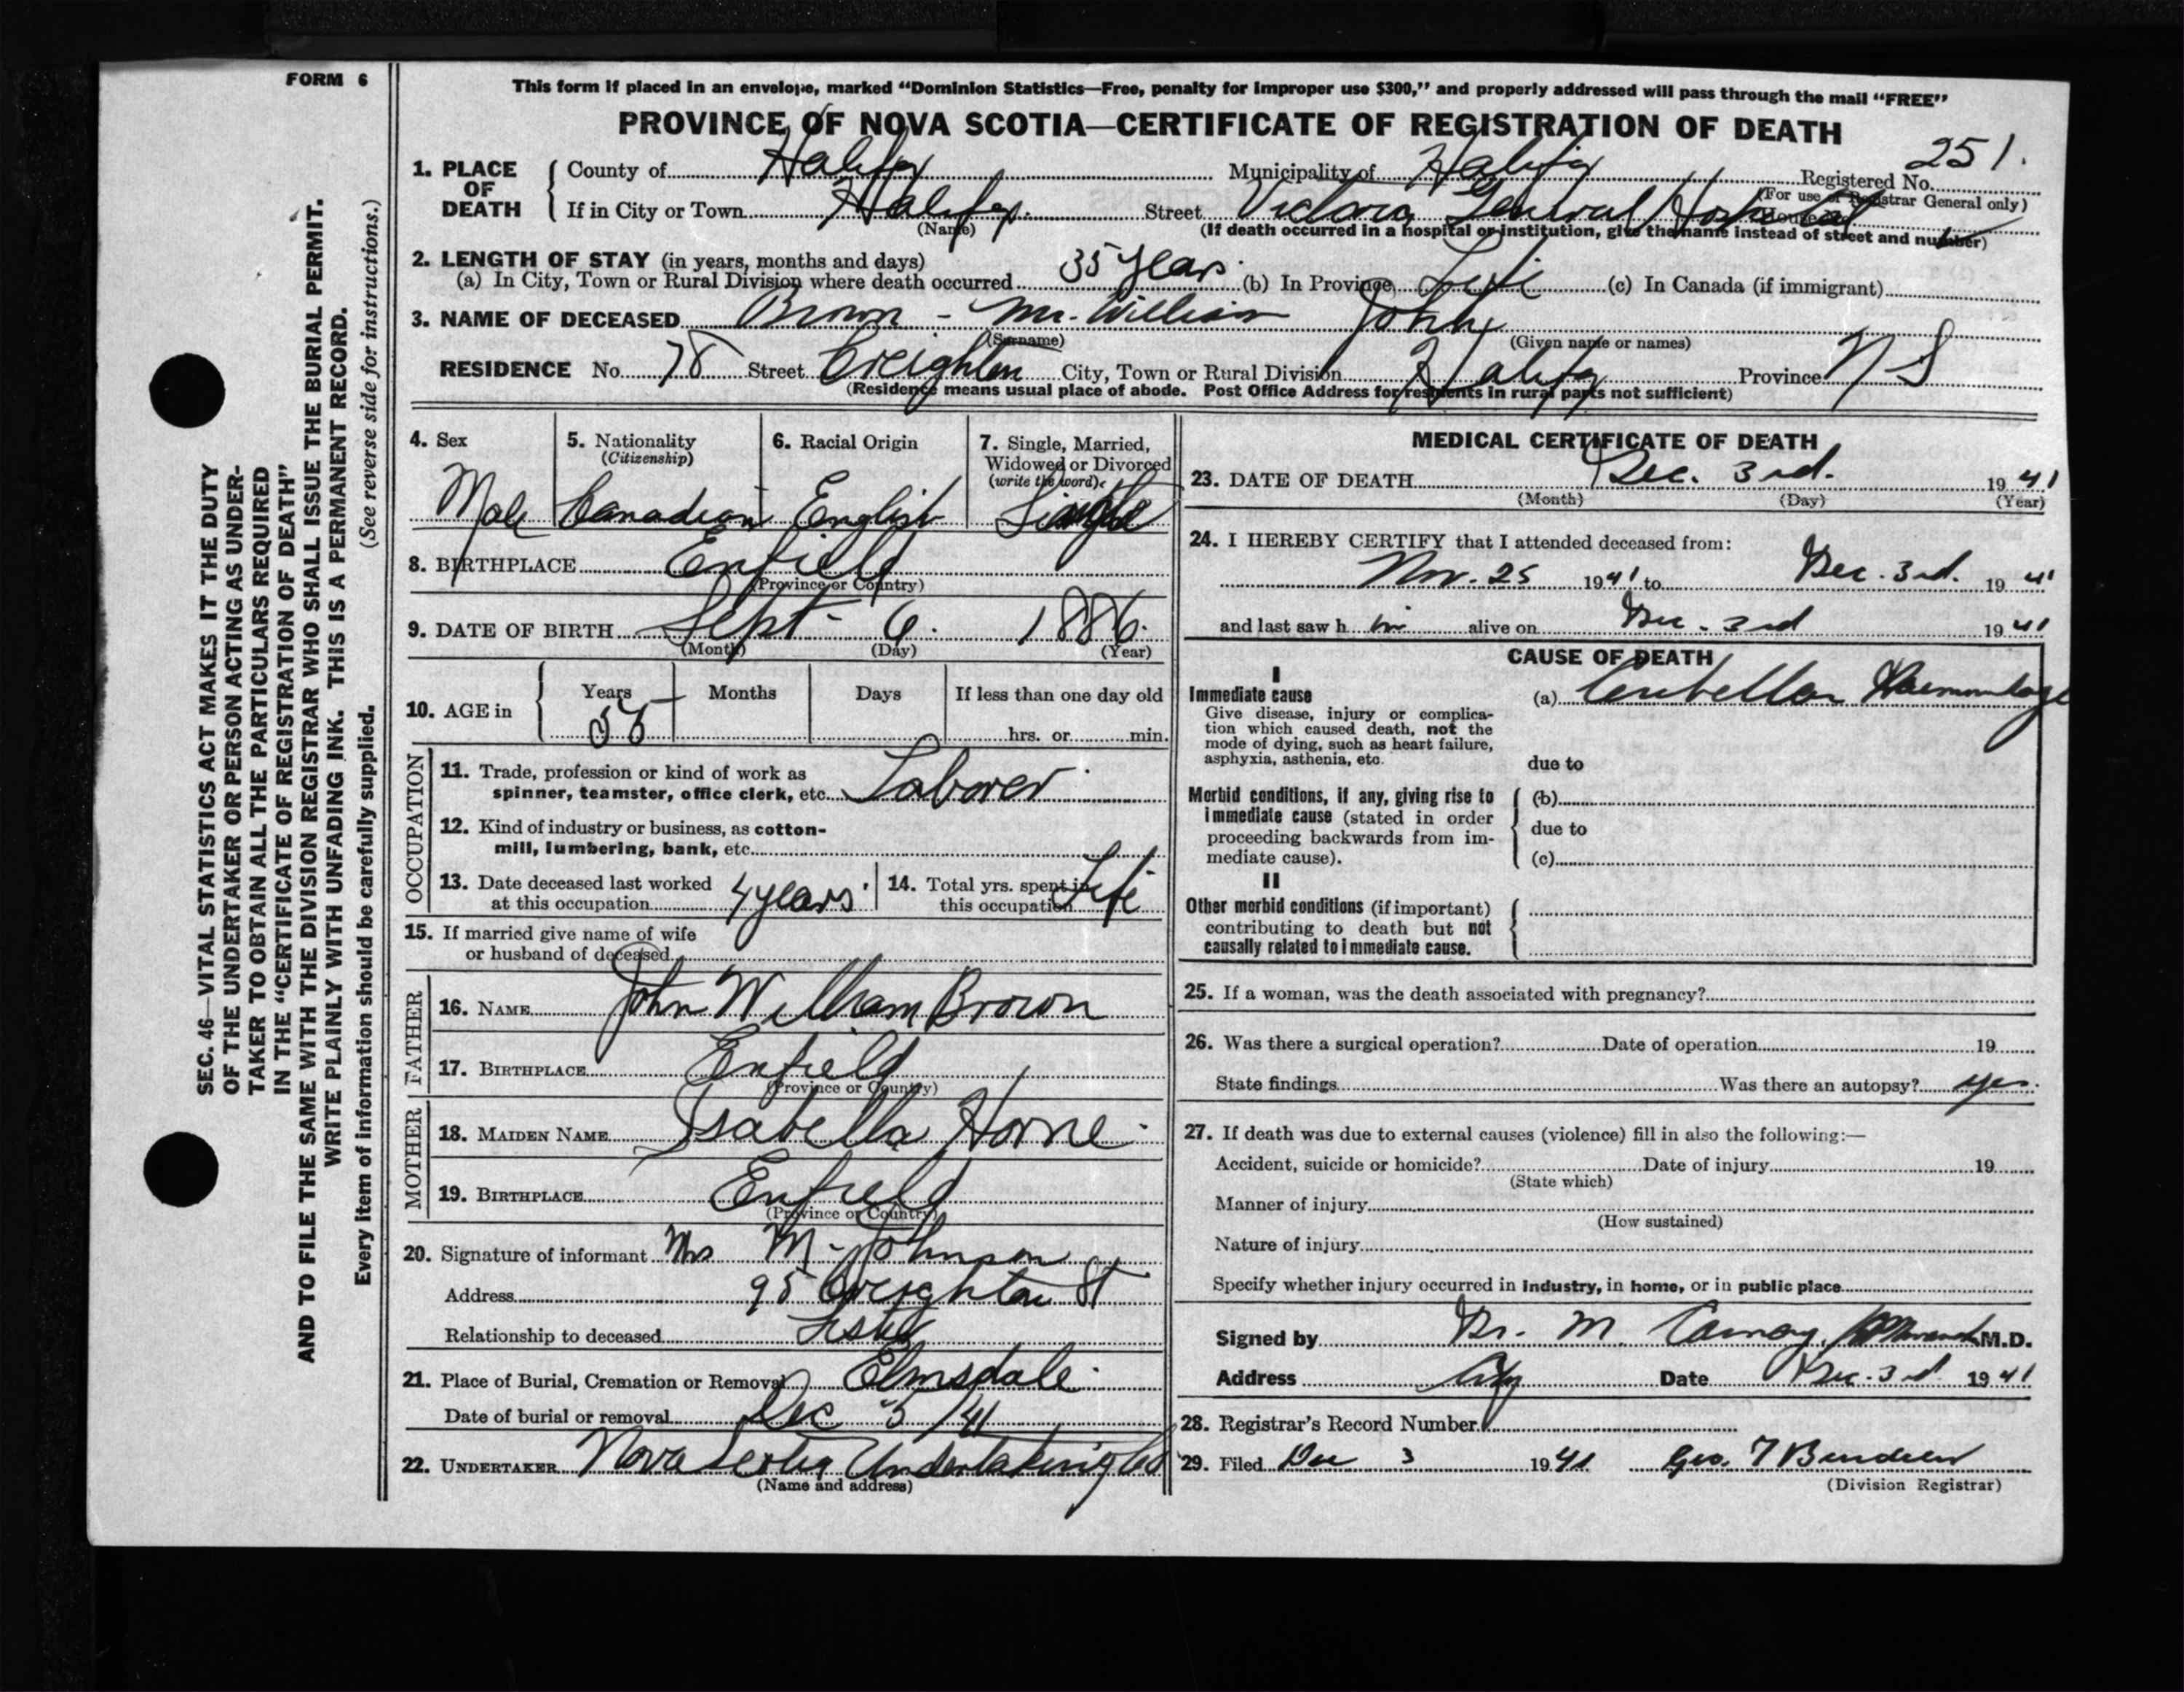 FORM 6
This form if placed in an envelope, marked “Dominion Statistics—Free, penalty for improper use $300,” and properly addressed will pass through the mail “FREE”
PROVINCE OF NOVA SCOTIA—CERTIFICATE OF REGISTRATION OF DEATH
251.
1. PLACE OF DEATH County of Halifax Municipality of Halifax Registered No.
(For use of Registrar General only)
If in City or Town Halifax Street Victoria General Hospital House No.
(Name) (If death occurred in a hospital or institution, give the name instead of street and number)
2. LENGTH OF STAY (in years, months and days)
(a) In City, Town or Rural Division where death occurred 35 years (b) In Province Life (c) In Canada (if immigrant)
3. NAME OF DECEASED Brown - Mr. William John
(Surname) (Given name or names)
RESIDENCE No. 78 Street Creighton City, Town or Rural Division Halifax Province N S
(Residence means usual place of abode. Post Office Address for residents in rural parts not sufficient)
4. Sex 5. Nationality 6. Racial Origin 7. Single, Married,
(Citizenship) Widowed or Divorced
(write the word)
Male Canadian English Single
8. BIRTHPLACE Enfield
(Province or Country)
9. DATE OF BIRTH Sept - 6. 1886.
(Month) (Day) (Year)
10. AGE in Years Months Days If less than one day old
55 hrs. or min.
OCCUPATION
11. Trade, profession or kind of work as
spinner, teamster, office clerk, etc. Laborer
12. Kind of industry or business, as cotton-
mill, lumbering, bank, etc.
13. Date deceased last worked 14. Total yrs. spent in
at this occupation 4 years this occupation Life
15. If married give name of wife
or husband of deceased
FATHER
16. NAME John William Brown
17. BIRTHPLACE Enfield
(Province or Country)
MOTHER
18. MAIDEN NAME Isabella Horne
19. BIRTHPLACE Enfield
(Province or Country)
20. Signature of informant Mrs M. Johnson
Address 95 Creighton St
Relationship to deceased Sister
21. Place of Burial, Cremation or Removal Elmsdale
Date of burial or removal Dec 5/41
22. UNDERTAKER Nova Scotia Undertaking Co
(Name and address)
MEDICAL CERTIFICATE OF DEATH
23. DATE OF DEATH Dec. 3rd. 1941
(Month) (Day) (Year)
24. I HEREBY CERTIFY that I attended deceased from:
Nov. 25 1941 to Dec. 3rd. 1941
and last saw h im alive on Dec. 3rd 1941
CAUSE OF DEATH
I
Immediate cause (a) Cerebellar Haemorrhage
Give disease, injury or complica-
tion which caused death, not the
mode of dying, such as heart failure,
asphyxia, asthenia, etc. due to
Morbid conditions, if any, giving rise to (b)
immediate cause (stated in order
proceeding backwards from im- due to
mediate cause). (c)
II
Other morbid conditions (if important)
contributing to death but not
causally related to immediate cause.
25. If a woman, was the death associated with pregnancy?
26. Was there a surgical operation? Date of operation 19
State findings Was there an autopsy? yes.
27. If death was due to external causes (violence) fill in also the following:—
Accident, suicide or homicide? Date of injury 19
(State which)
Manner of injury
(How sustained)
Nature of injury
Specify whether injury occurred in industry, in home, or in public place
Signed by Dr. M. M.D.
Address City Date Dec. 3rd 1941
28. Registrar's Record Number
29. Filed Dec 3 1941 Geo.
(Division Registrar)
SEC. 46—VITAL STATISTICS ACT MAKES IT THE DUTY
OF THE UNDERTAKER OR PERSON ACTING AS UNDER-
TAKER TO OBTAIN ALL THE PARTICULARS REQUIRED
IN THE “CERTIFICATE OF REGISTRATION OF DEATH”
AND TO FILE THE SAME WITH THE DIVISION REGISTRAR WHO SHALL ISSUE THE BURIAL PERMIT.
WRITE PLAINLY WITH UNFADING INK. THIS IS A PERMANENT RECORD.
Every item of information should be carefully supplied. (See reverse side for instructions.)